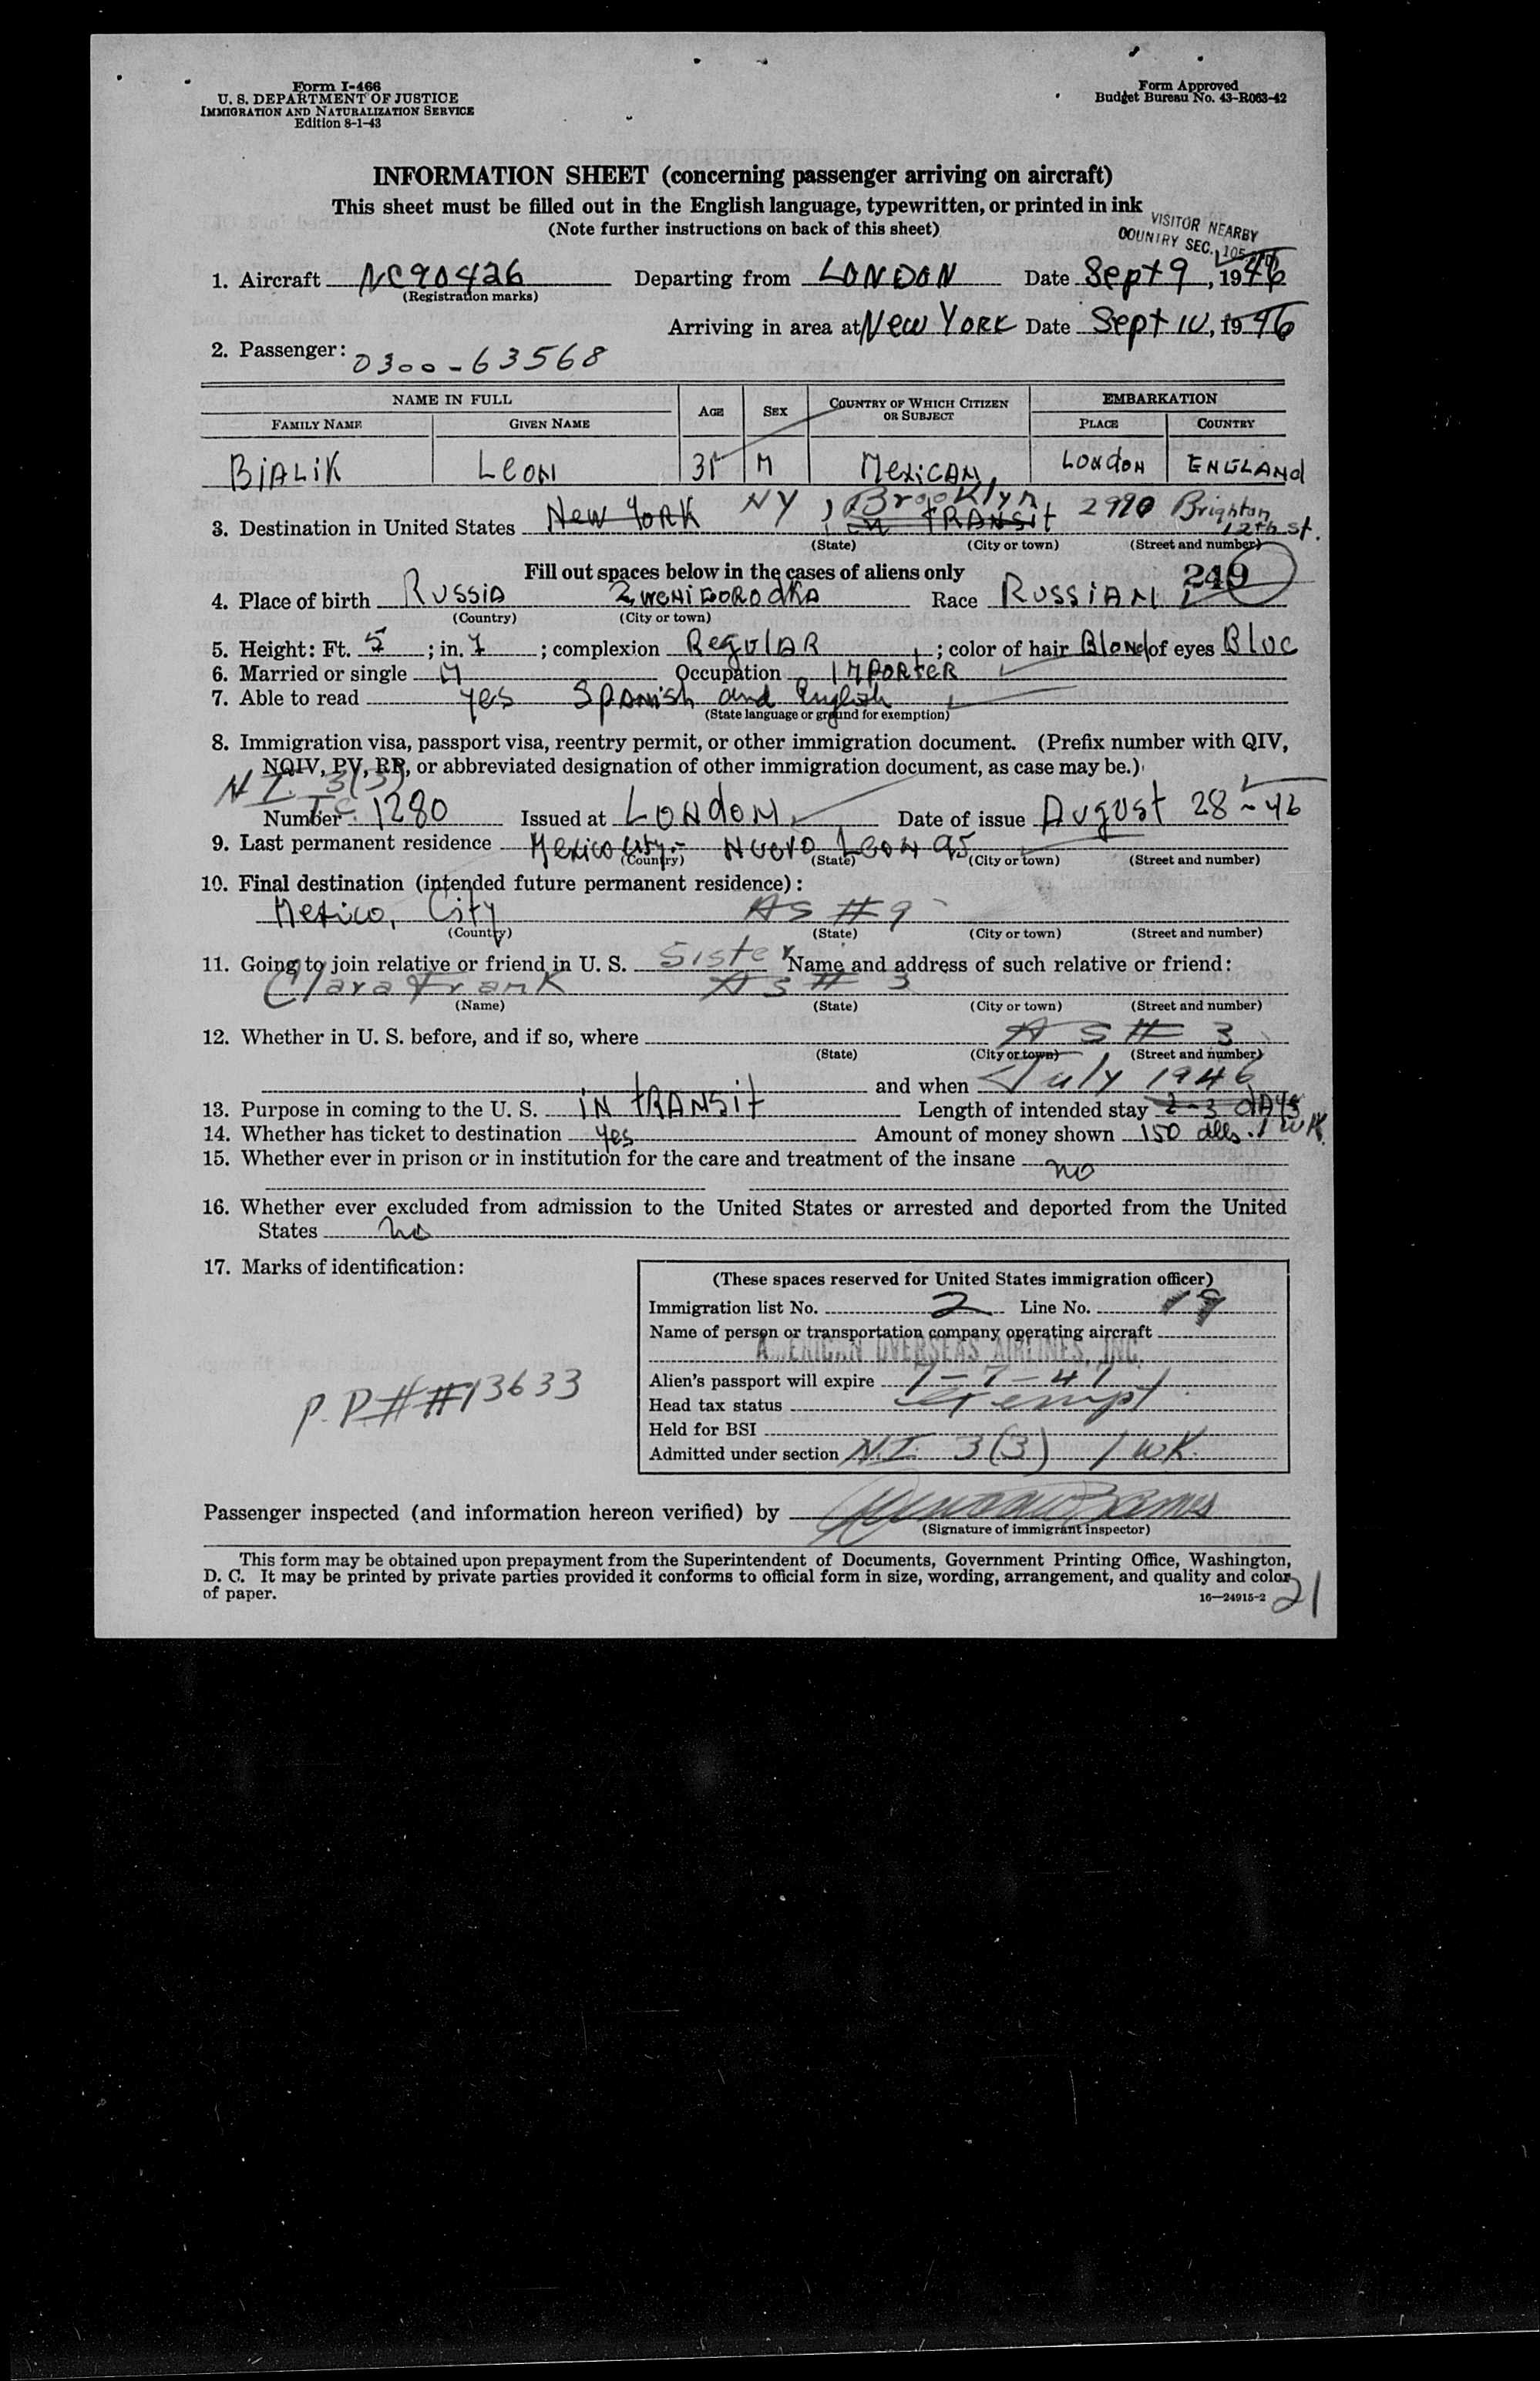 Form I-466
U. S. DEPARTMENT OF JUSTICE
IMMIGRATION AND NATURALIZATION SERVICE
Edition 8-1-43
Form Approved
Budget Bureau No. 43-R063-42
INFORMATION SHEET (concerning passenger arriving on aircraft)
This sheet must be filled out in the English language, typewritten, or printed in ink
(Note further instructions on back of this sheet)
VISITOR NEARBY
COUNTRY SEC.
1. Aircraft NC90426 Departing from LONDON Date Sept 9, 1946
(Registration marks)
Arriving in area at New YORK Date Sept 10, 1946
2. Passenger: 0300-63568
NAME IN FULL AGE SEX COUNTRY OF WHICH CITIZEN OR SUBJECT EMBARKATION
FAMILY NAME GIVEN NAME PLACE COUNTRY
BiALiK LEON 35 M MexicAN, LONdON ENGLANd
3. Destination in United States New YORK NY, Brooklyn in TRANSit 2990 Brighton 12th st.
(State) (City or town) (Street and number)
Fill out spaces below in the cases of aliens only
249
4. Place of birth RUSSIA ZWENIGORODKA Race RUSSIAN
(Country) (City or town)
5. Height: Ft. 5; in. 7; complexion RegulAR; color of hair Blond of eyes Blue
6. Married or single M Occupation IMPORTER
7. Able to read yes SpANish and English
(State language or ground for exemption)
8. Immigration visa, passport visa, reentry permit, or other immigration document. (Prefix number with QIV,
NQIV, PV, RP, or abbreviated designation of other immigration document, as case may be.)
N.I. 3(3)
Number 1280 Issued at LONdON Date of issue August 28-46
9. Last permanent residence Mexico City - NUEVO LEON 95
(Country) (State) (City or town) (Street and number)
10. Final destination (intended future permanent residence):
Mexico, City AS # 9
(Country) (State) (City or town) (Street and number)
11. Going to join relative or friend in U. S. Sister Name and address of such relative or friend:
Clara Frank AS # 3
(Name) (State) (City or town) (Street and number)
12. Whether in U. S. before, and if so, where AS # 3
(State) (City or town) (Street and number)
and when July 1946
13. Purpose in coming to the U. S. iN tRANSit Length of intended stay 2-3 dAYS 1 WK.
14. Whether has ticket to destination yes Amount of money shown 150 dlls.
15. Whether ever in prison or in institution for the care and treatment of the insane no
16. Whether ever excluded from admission to the United States or arrested and deported from the United
States no
17. Marks of identification:
P.P.# #13633
(These spaces reserved for United States immigration officer)
Immigration list No. 2 Line No. 19
Name of person or transportation company operating aircraft
AMERICAN OVERSEAS AIRLINES, INC.
Alien's passport will expire 7-7-47
Head tax status exempt
Held for BSI
Admitted under section N.I. 3(3) 1 WK.
Passenger inspected (and information hereon verified) by
(Signature of immigrant inspector)
This form may be obtained upon prepayment from the Superintendent of Documents, Government Printing Office, Washington,
D. C. It may be printed by private parties provided it conforms to official form in size, wording, arrangement, and quality and color
of paper.
16—24915-2
21